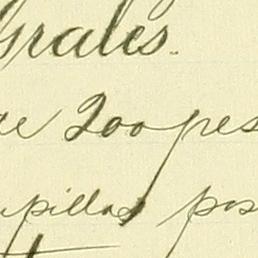 Grales.
de 200 pes
pillas pos